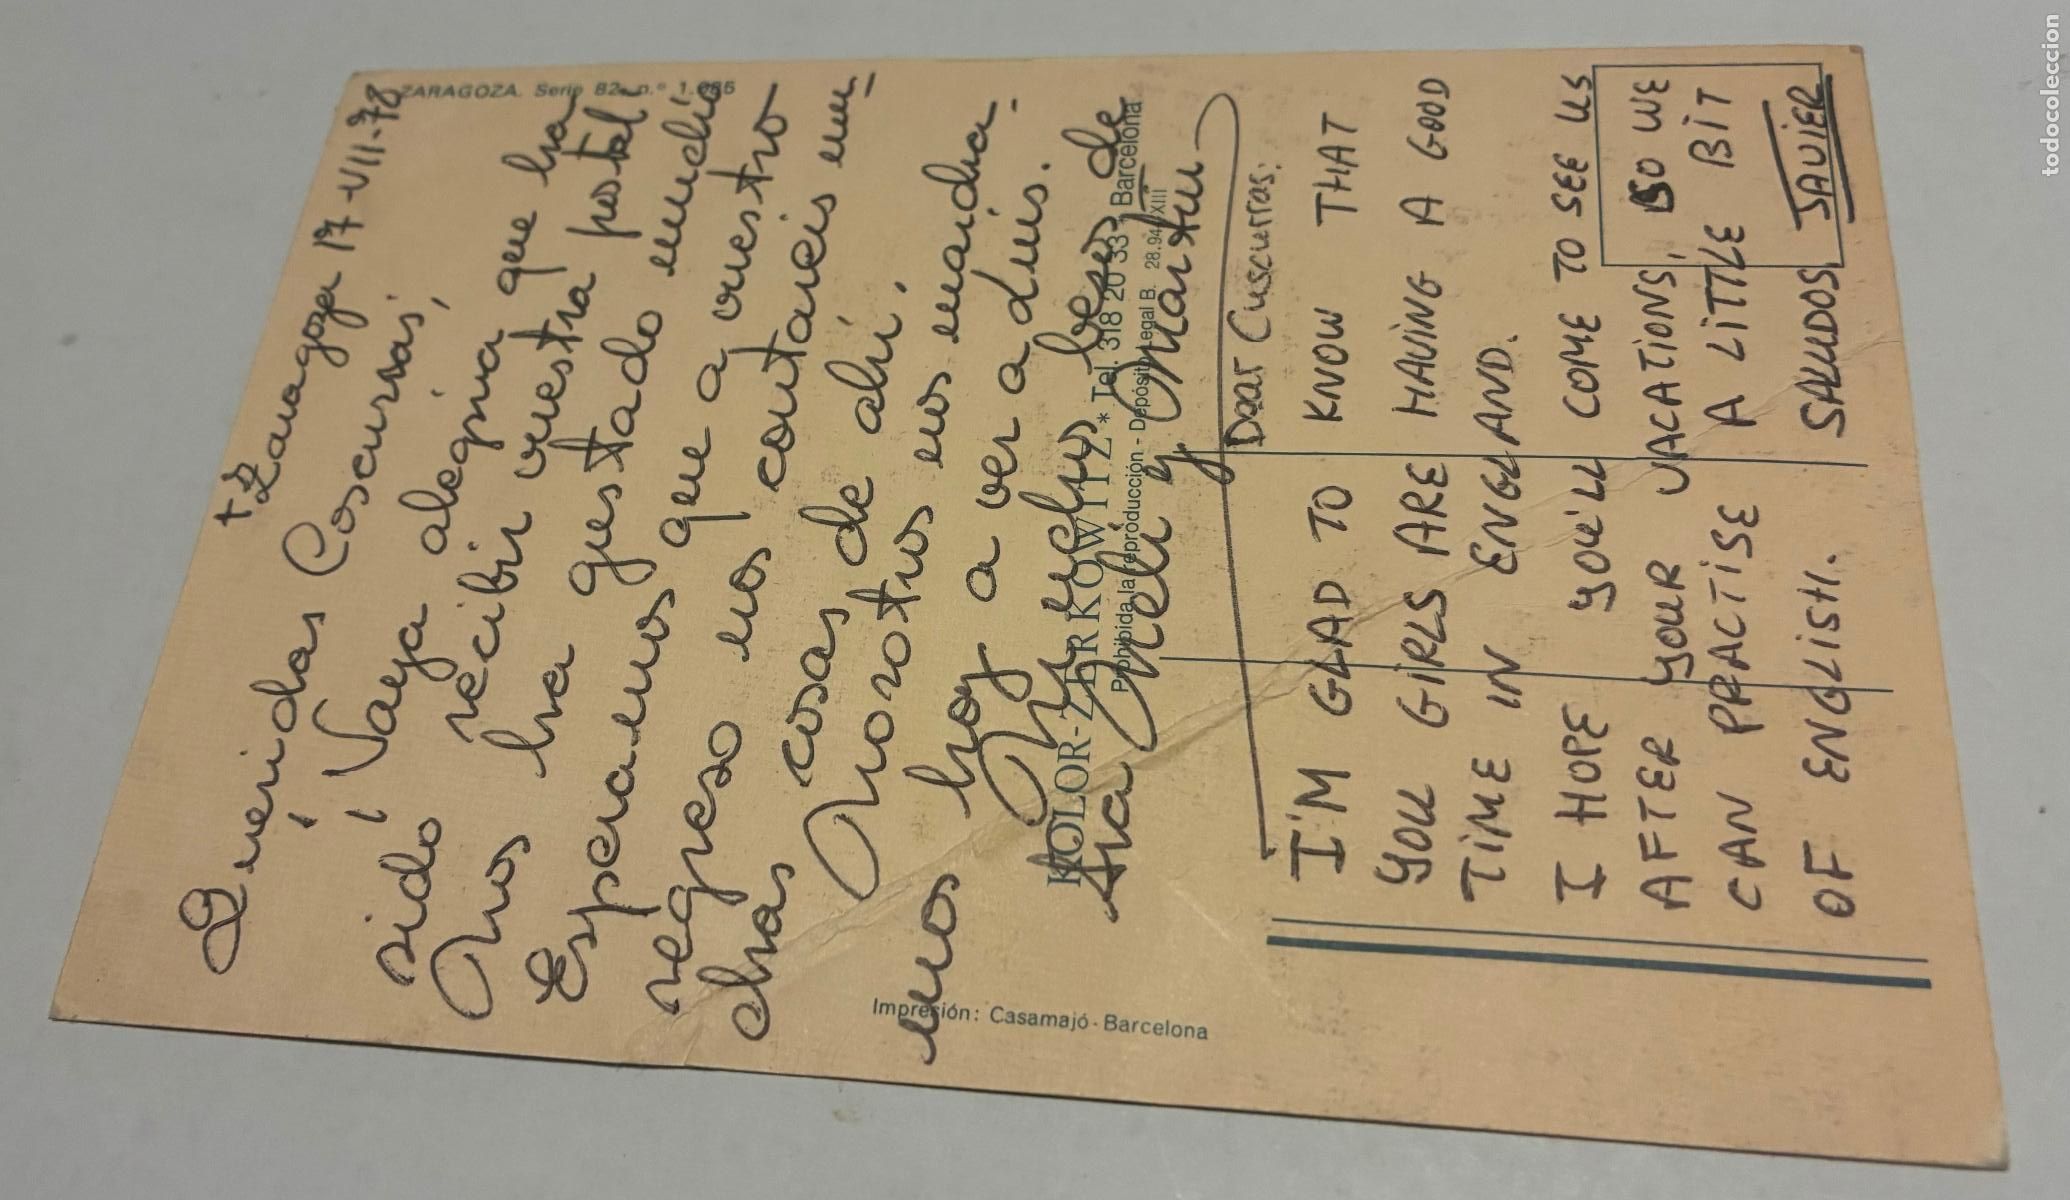 ZARAGOZA. Serie 82, n.º 1.085
+ Zaragoza 17-VII-78
Queridas Coscurras,
¡¡ Vaya alegria que ha
sido recibir vuestra postal!
Nos ha gustado mucho
Esperamos que a vuestro
regreso nos contareis mu-
chas cosas de ahí.
Nosotros nos marcha-
mos hoy a ver a Luis.
Muchos besos de
Ana Meli y Martu
KOLOR-ZERKOWITZ * Tel. 318 20 33 * Barcelona
Prohibida la reproducción - Depósito Legal B. 28.94 XIII
Impresión: Casamajó - Barcelona
Dear Cuscurras:
I'M GLAD TO KNOW THAT
YOU GIRLS ARE HAVING A GOOD
TIME IN ENGLAND.
I HOPE YOU'LL COME TO SEE US
AFTER YOUR VACATIONS, SO WE
CAN PRACTISE A LITTLE BIT
OF ENGLISH. SALUDOS, JAVIER
todocoleccion